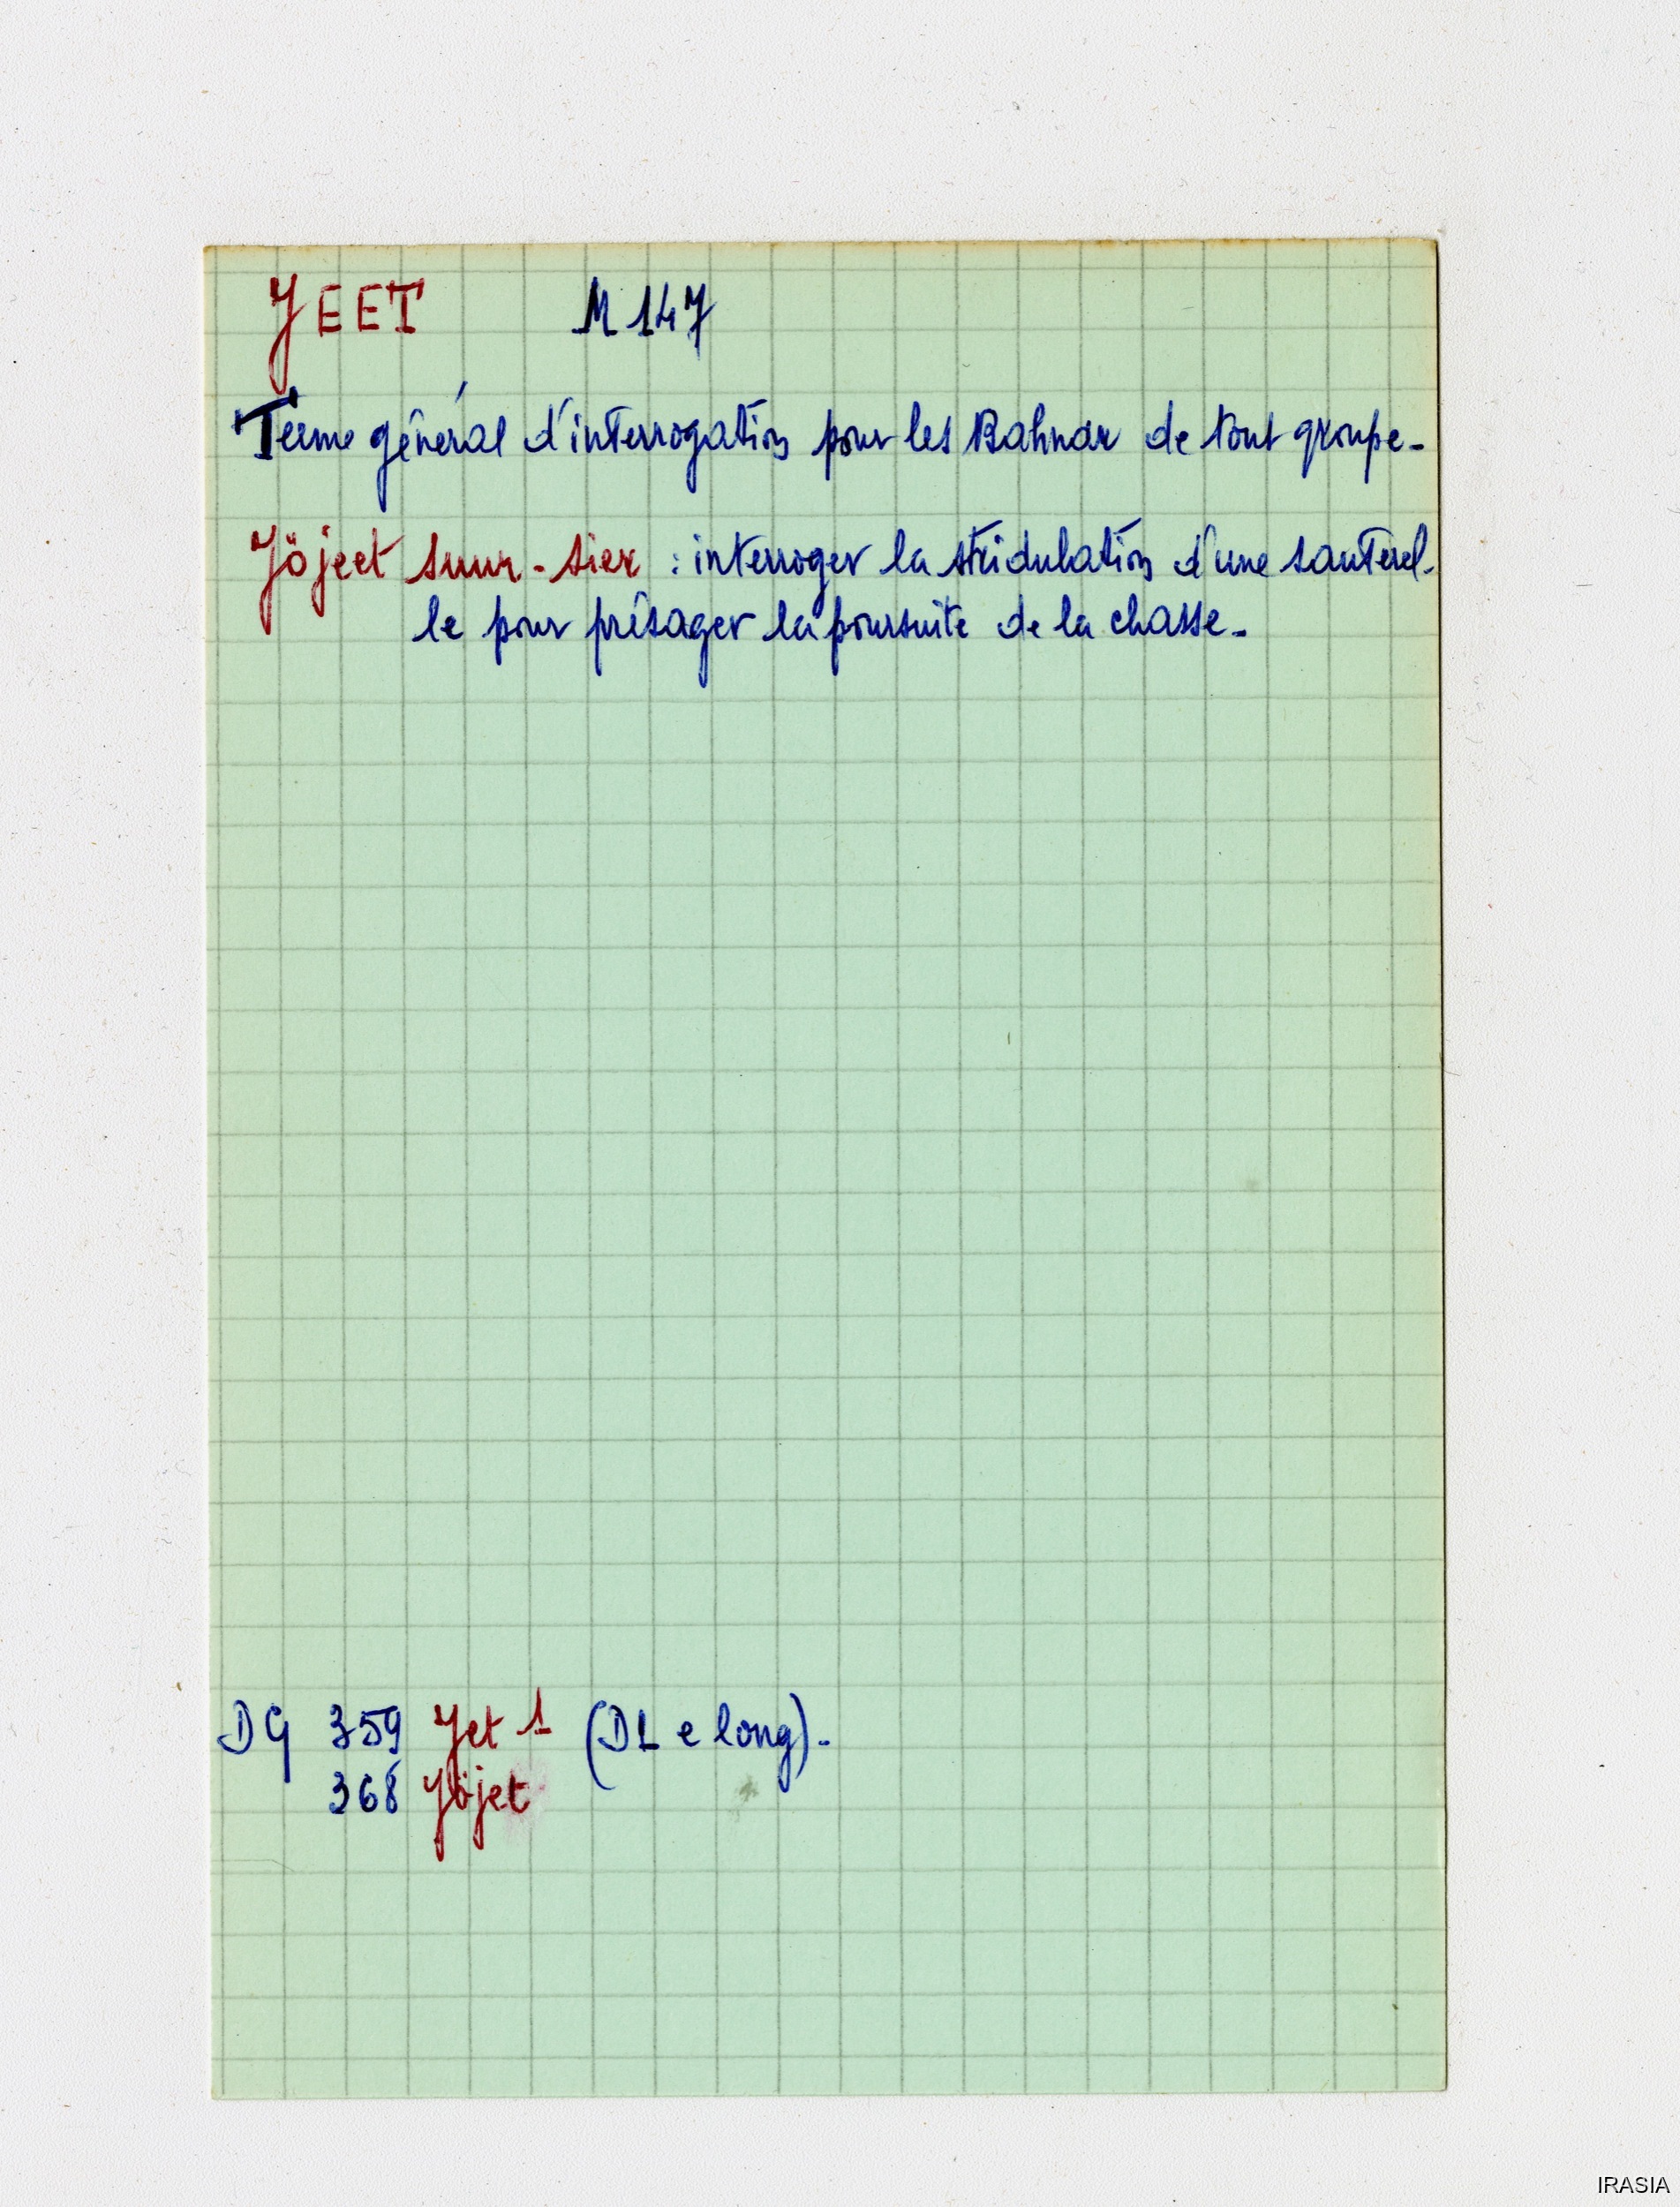 JEET M 147
Terme général d'interrogation pour les Bahnar de tout groupe.
Jöjeet suur-sier : interroger la stridulation d'une sauterel-
le pour présager la poursuite de la chasse.
DG 359 Jet 1 (DL e long).
368 Jöjet
IRASIA